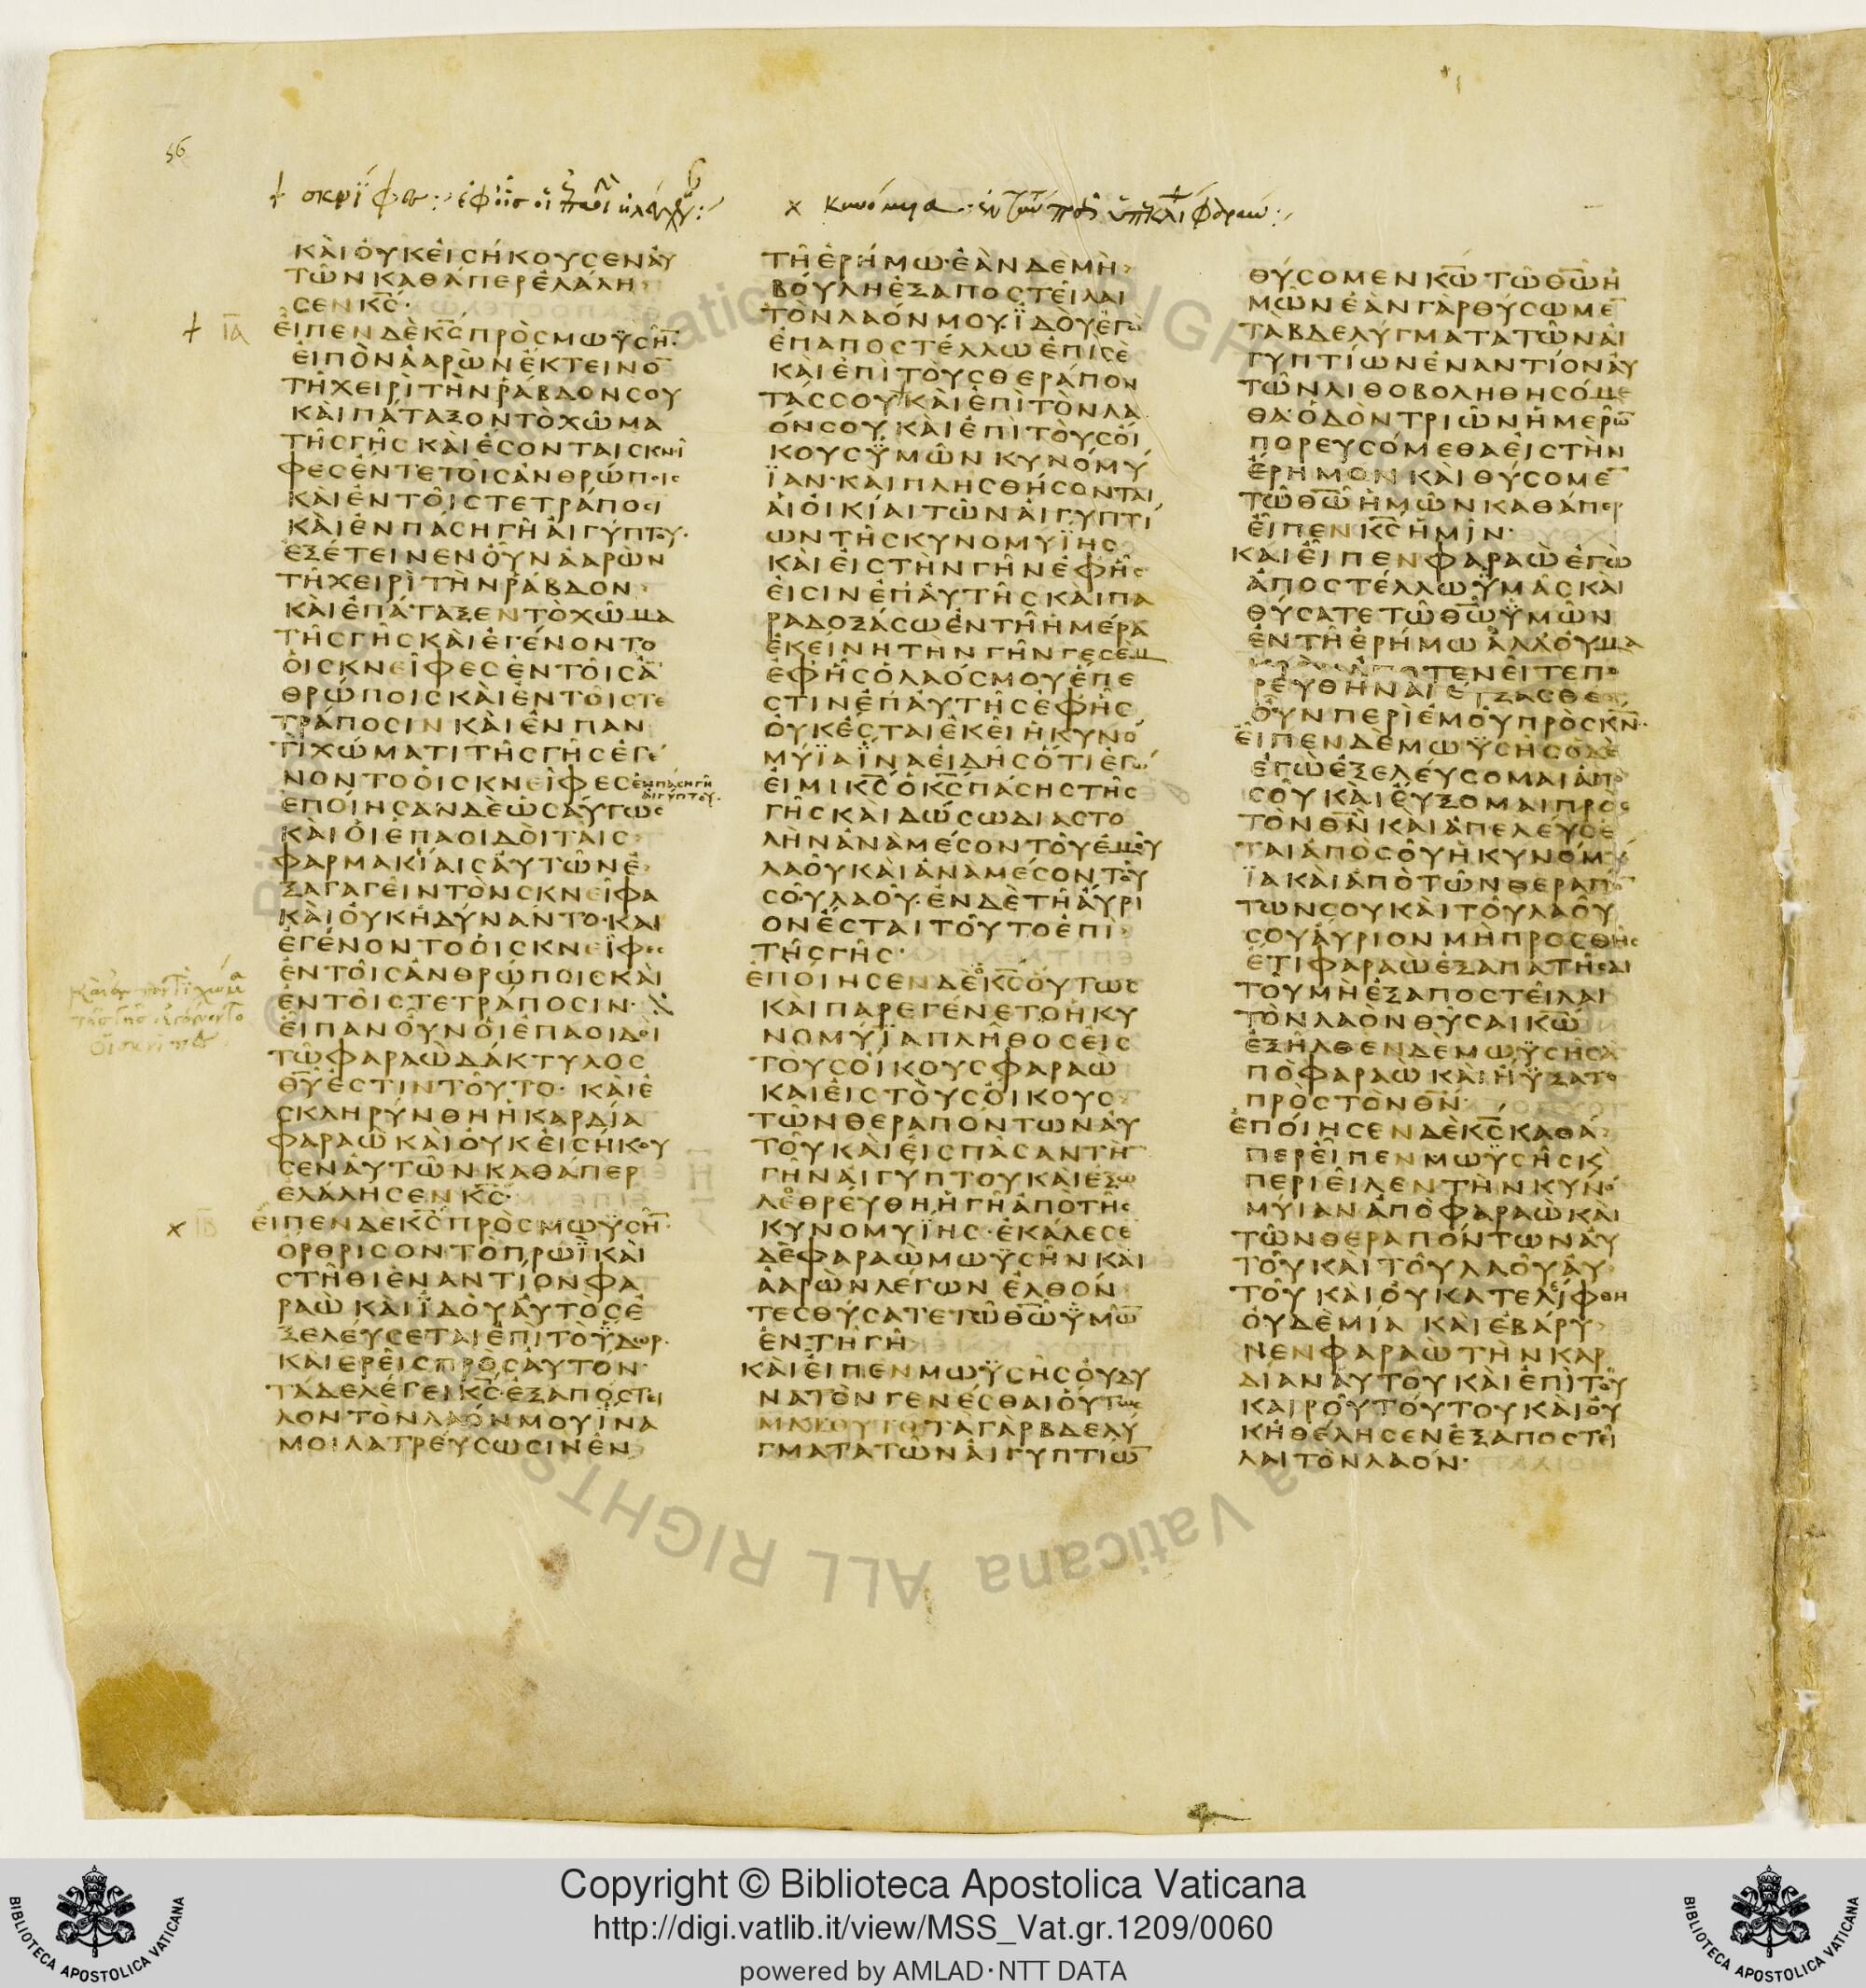 56
ΚΑΙΟΥΚΕΙΣΗΚΟΥΣΕΝΑΥ
ΤΩΝΚΑΘΑΠΕΡΕΛΑΛΗ
ΣΕΝΚΣ·
ΙΑ ΕΙΠΕΝΔΕΚΣΠΡΟΣΜΩΥΣΗ·
ΕΙΠΟΝΑΑΡΩΝΕΚΤΕΙΝΟ
ΤΗΧΕΙΡΙΤΗΝΡΑΒΔΟΝΣΟΥ
ΚΑΙΠΑΤΑΞΟΝΤΟΧΩΜΑ
ΤΗΣΓΗΣΚΑΙΕΣΟΝΤΑΙΣΚΝΙ
ΦΕΣΕΝΤΕΤΟΙΣΑΝΘΡΩΠΟΙΣ
ΚΑΙΕΝΤΟΙΣΤΕΤΡΑΠΟΣΙ
ΚΑΙΕΝΠΑΣΗΓΗΑΙΓΥΠΤΟΥ·
ΕΞΕΤΕΙΝΕΝΟΥΝΑΑΡΩΝ
ΤΗΧΕΙΡΙΤΗΝΡΑΒΔΟΝ
ΚΑΙΕΠΑΤΑΞΕΝΤΟΧΩΜΑ
ΤΗΣΓΗΣΚΑΙΕΓΕΝΟΝΤΟ
ΟΙΣΚΝΕΙΦΕΣΕΝΤΟΙΣΑ
ΘΡΩΠΟΙΣΚΑΙΕΝΤΟΙΣΤΕ
ΤΡΑΠΟΣΙΝΚΑΙΕΝΠΑΝ
ΤΙΧΩΜΑΤΙΤΗΣΓΗΣΕΓΕ
ΝΟΝΤΟΟΙΣΚΝΕΙΦΕΣ ΕΝΠΑΣΗΓΗ ΑΙΓΥΠΤΟΥ·
ΕΠΟΙΗΣΑΝΔΕΩΣΑΥΤΩΣ
ΚΑΙΟΙΕΠΑΟΙΔΟΙΤΑΙΣ
ΦΑΡΜΑΚΙΑΙΣΑΥΤΩΝΕ
ΞΑΓΑΓΕΙΝΤΟΝΣΚΝΕΙΦΑ
ΚΑΙΟΥΚΗΔΥΝΑΝΤΟ·ΚΑΙ
ΕΓΕΝΟΝΤΟΟΙΣΚΝΕΙΦΕΣ
ΕΝΤΟΙΣΑΝΘΡΩΠΟΙΣΚΑΙ
ΕΝΤΟΙΣΤΕΤΡΑΠΟΣΙΝ·
ΕΙΠΑΝΟΥΝΟΙΕΠΑΟΙΔΟΙ
ΤΩΦΑΡΑΩΔΑΚΤΥΛΟΣ
ΘΥΕΣΤΙΝΤΟΥΤΟ·ΚΑΙΕ
ΣΚΛΗΡΥΝΘΗΗΚΑΡΔΙΑ
ΦΑΡΑΩΚΑΙΟΥΚΕΙΣΗΚΟΥ
ΣΕΝΑΥΤΩΝΚΑΘΑΠΕΡ
ΕΛΑΛΗΣΕΝΚΣ·
ΙΒ ΕΙΠΕΝΔΕΚΣΠΡΟΣΜΩΥΣΗ·
ΟΡΘΡΙΣΟΝΤΟΠΡΩΙΚΑΙ
ΣΤΗΘΙΕΝΑΝΤΙΟΝΦΑ
ΡΑΩΚΑΙΙΔΟΥΑΥΤΟΣΕ
ΞΕΛΕΥΣΕΤΑΙΕΠΙΤΟΥΔΩΡ·
ΚΑΙΕΡΕΙΣΠΡΟΣΑΥΤΟΝ
ΤΑΔΕΛΕΓΕΙΚΣ·ΕΞΑΠΟΣΤΕΙ
ΛΟΝΤΟΝΛΑΟΝΜΟΥΙΝΑ
ΜΟΙΛΑΤΡΕΥΣΩΣΙΝΕΝ
ΤΗΕΡΗΜΩ·ΕΑΝΔΕΜΗ
ΒΟΥΛΗΕΞΑΠΟΣΤΕΙΛΑΙ
ΤΟΝΛΑΟΝΜΟΥ·ΙΔΟΥΕΓΩ
ΕΠΑΠΟΣΤΕΛΛΩΕΠΙΣΕ
ΚΑΙΕΠΙΤΟΥΣΘΕΡΑΠΟΝ
ΤΑΣΣΟΥΚΑΙΕΠΙΤΟΝΛΑ
ΟΝΣΟΥΚΑΙΕΠΙΤΟΥΣΟΙ
ΚΟΥΣΥΜΩΝΚΥΝΟΜΥ
ΙΑΝ·ΚΑΙΠΛΗΣΘΗΣΟΝΤΑΙ
ΑΙΟΙΚΙΑΙΤΩΝΑΙΓΥΠΤΙ
ΩΝΤΗΣΚΥΝΟΜΥΙΗΣ
ΚΑΙΕΙΣΤΗΝΓΗΝΕΦΗΣ
ΕΙΣΙΝΕΠΑΥΤΗΣΚΑΙΠΑ
ΡΑΔΟΞΑΣΩΕΝΤΗΗΜΕΡΑ
ΕΚΕΙΝΗΤΗΝΓΗΝΓΕΣΕΜ
ΕΦΗΣΟΛΑΟΣΜΟΥΕΠΕ
ΣΤΙΝΕΠΑΥΤΗΣΕΦΗΣ
ΟΥΚΕΣΤΑΙΕΚΕΙΗΚΥΝΟ
ΜΥΙΑΙΝΑΕΙΔΗΣΟΤΙΕΓΩ
ΕΙΜΙΚΣΟΚΣΠΑΣΗΣΤΗΣ
ΓΗΣΚΑΙΔΩΣΩΔΙΑΣΤΟ
ΛΗΝΑΝΑΜΕΣΟΝΤΟΥΕΜΟΥ
ΛΑΟΥΚΑΙΑΝΑΜΕΣΟΝΤΟΥ
ΣΟΥΛΑΟΥ·ΕΝΔΕΤΗΑΥΡΙ
ΟΝΕΣΤΑΙΤΟΥΤΟΕΠΙ
ΤΗΣΓΗΣ·
ΕΠΟΙΗΣΕΝΔΕΟΚΣΟΥΤΩΣ
ΚΑΙΠΑΡΕΓΕΝΕΤΟΗΚΥ
ΝΟΜΥΙΑΠΛΗΘΟΣΕΙΣ
ΤΟΥΣΟΙΚΟΥΣΦΑΡΑΩ
ΚΑΙΕΙΣΤΟΥΣΟΙΚΟΥΣ
ΤΩΝΘΕΡΑΠΟΝΤΩΝΑΥ
ΤΟΥΚΑΙΕΙΣΠΑΣΑΝΤΗ
ΓΗΝΑΙΓΥΠΤΟΥΚΑΙΕΞΩ
ΛΕΘΡΕΥΘΗΗΓΗΑΠΟΤΗΣ
ΚΥΝΟΜΥΙΗΣ·ΕΚΑΛΕΣΕ
ΔΕΦΑΡΑΩΜΩΥΣΗΝΚΑΙ
ΑΑΡΩΝΛΕΓΩΝΕΛΘΟΝ
ΤΕΣΘΥΣΑΤΕΤΩΘΩΥΜΩ
ΕΝΤΗΓΗ
ΚΑΙΕΙΠΕΝΜΩΥΣΗΣΟΥΔΥ
ΝΑΤΟΝΓΕΝΕΣΘΑΙΟΥΤΩΣ
ΤΑΓΑΡΒΔΕΛΥ
ΓΜΑΤΑΤΩΝΑΙΓΥΠΤΙΩ
ΘΥΣΟΜΕΝΚΩ·ΤΩΘΩΗ
ΜΩΝΕΑΝΓΑΡΘΥΣΩΜΕ
ΤΑΒΔΕΛΥΓΜΑΤΑΤΩΝΑΙ
ΓΥΠΤΙΩΝΕΝΑΝΤΙΟΝΑΥ
ΤΩΝΛΙΘΟΒΟΛΗΘΗΣΟΜΕ
ΘΑ·ΟΔΟΝΤΡΙΩΝΗΜΕΡΩ
ΠΟΡΕΥΣΟΜΕΘΑΕΙΣΤΗΝ
ΕΡΗΜΟΝΚΑΙΘΥΣΟΜΕ
ΤΩΘΩΗΜΩΝΚΑΘΑΠΕΡ
ΕΙΠΕΝΚΣΗΜΙΝ·
ΚΑΙΕΙΠΕΝΦΑΡΑΩΕΓΩ
ΑΠΟΣΤΕΛΛΩΥΜΑΣΚΑΙ
ΘΥΣΑΤΕΤΩΘΩΥΜΩΝ
ΕΝΤΗΕΡΗΜΩΑΛΛΟΥΜΑ
ΤΕΝΕΙΤΕΠΟ
ΡΕΥΘΗΝΑΙΕΥΞΑΣΘΕ
ΟΥΝΠΕΡΙΕΜΟΥΠΡΟΣΚΝ·
ΕΙΠΕΝΔΕΜΩΥΣΗΣΟΔΕ
ΕΓΩΕΞΕΛΕΥΣΟΜΑΙΑΠΟ
ΣΟΥΚΑΙΕΥΞΟΜΑΙΠΡΟΣ
ΤΟΝΘΝΚΑΙΑΠΕΛΕΥΣΕ
ΤΑΙΑΠΟΣΟΥΗΚΥΝΟΜΥ
ΙΑΚΑΙΑΠΟΤΩΝΘΕΡΑΠΟ
ΤΩΝΣΟΥΚΑΙΤΟΥΛΑΟΥ
ΣΟΥΑΥΡΙΟΝΜΗΠΡΟΣΘΗΣ
ΕΤΙΦΑΡΑΩΕΞΑΠΑΤΗΣΑΙ
ΤΟΥΜΗΕΞΑΠΟΣΤΕΙΛΑΙ
ΤΟΝΛΑΟΝΘΥΣΑΙΚΩ
ΕΞΗΛΘΕΝΔΕΜΩΥΣΗΣΑ
ΠΟΦΑΡΑΩΚΑΙΗΥΞΑΤΟ
ΠΡΟΣΤΟΝΘΝ·
ΕΠΟΙΗΣΕΝΔΕΚΣΚΑΘΑ
ΠΕΡΕΙΠΕΝΜΩΥΣΗΣΚ
ΠΕΡΙΕΙΛΕΝΤΗΝΚΥΝΟ
ΜΥΙΑΝΑΠΟΦΑΡΑΩΚΑΙ
ΤΩΝΘΕΡΑΠΟΝΤΩΝΑΥ
ΤΟΥΚΑΙΤΟΥΛΑΟΥΑΥ
ΤΟΥΚΑΙΟΥΚΑΤΕΛΙΦΘΗ
ΟΥΔΕΜΙΑΚΑΙΕΒΑΡΥ
ΝΕΝΦΑΡΑΩΤΗΝΚΑΡ
ΔΙΑΝΑΥΤΟΥΚΑΙΕΠΙΤΟΥ
ΚΑΙΡΟΥΤΟΥΤΟΥΚΑΙΟΥ
ΚΗΘΕΛΗΣΕΝΕΞΑΠΟΣΤΕΙ
ΛΑΙΤΟΝΛΑΟΝ·
Copyright © Biblioteca Apostolica Vaticana
http://digi.vatlib.it/view/MSS_Vat.gr.1209/0060
powered by AMLAD·NTT DATA
BIBLIOTECA APOSTOLICA VATICANA
BIBLIOTECA APOSTOLICA VATICANA